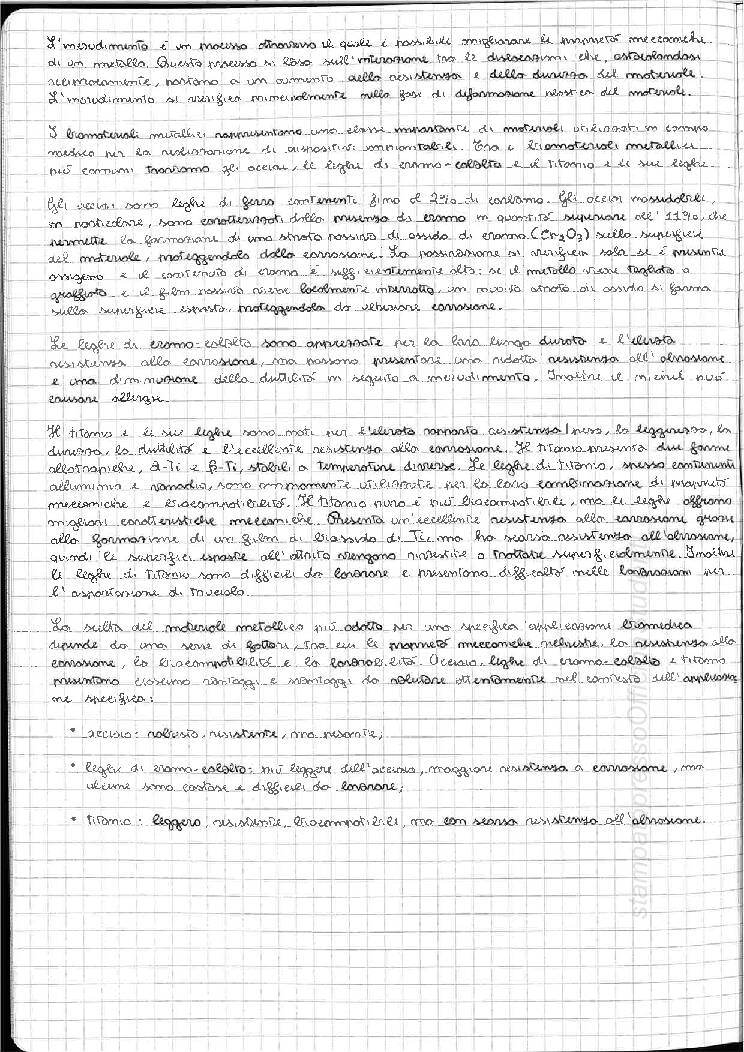 L'incrudimento è un processo attraverso il quale è possibile migliorare le proprietà meccaniche
di un metallo. Questo processo si basa sull'interazione tra le dislocazioni che, ostacolandosi
reciprocamente, portano a un aumento della resistenza e della durezza del materiale.
L'incrudimento si verifica principalmente nella fase di deformazione plastica del materiale.
I biomateriali metallici rappresentano una classe importante di materiali utilizzati in campo
medico per la realizzazione di dispositivi impiantabili. Tra i biomateriali metallici
più comuni troviamo gli acciai, le leghe di cromo-cobalto e il titanio e le sue leghe.
Gli acciai sono leghe di ferro contenenti fino al 2% di carbonio. Gli acciai inossidabili,
in particolare, sono caratterizzati dalla presenza di cromo in quantità superiore all'11%, che
permette la formazione di uno strato passivo di ossido di cromo (Cr2O3) sulla superficie
del materiale, proteggendolo dalla corrosione. La passivazione si verifica solo se è presente
ossigeno e il contenuto di cromo è sufficientemente alto: se il metallo viene tagliato o
graffiato e il film passivo viene localmente interrotto, un nuovo strato di ossido si forma
sulla superficie esposta, proteggendola da ulteriore corrosione.
Le leghe di cromo-cobalto sono apprezzate per la loro lunga durata e l'elevata
resistenza alla corrosione, ma possono presentare una ridotta resistenza all'abrasione
e una diminuzione della duttilità in seguito a incrudimento. Inoltre il nichel può
causare allergie.
Il titanio e le sue leghe sono noti per l'elevato rapporto resistenza/peso, la leggerezza, la
durezza, la duttilità e l'eccellente resistenza alla corrosione. Il titanio presenta due forme
allotropiche, α-Ti e β-Ti, stabili a temperature diverse. Le leghe di titanio, spesso contenenti
alluminio e vanadio, sono ampiamente utilizzate per la loro combinazione di proprietà
meccaniche e biocompatibilità. Il titanio puro è più biocompatibile, ma le leghe offrono
migliori caratteristiche meccaniche. Presenta un'eccellente resistenza alla corrosione grazie
alla formazione di un film di biossido di Ti, ma ha scarsa resistenza all'abrasione,
quindi le superfici esposte all'attrito vengono rivestite o trattate superficialmente. Inoltre
le leghe di titanio sono difficili da lavorare e presentano difficoltà nelle lavorazioni per
l'asportazione di truciolo.
La scelta del materiale metallico più adatto per una specifica applicazione biomedica
dipende da una serie di fattori, tra cui le proprietà meccaniche richieste, la resistenza alla
corrosione, la biocompatibilità e la lavorabilità. Acciaio, leghe di cromo-cobalto e titanio
presentano ciascuno vantaggi e svantaggi da valutare attentamente nel contesto dell'applicazio
ne specifica:
* acciaio: robusto, resistente, ma pesante;
* leghe di cromo-cobalto: più leggere dell'acciaio, maggiore resistenza a corrosione, ma
alcune sono costose e difficili da lavorare;
* titanio: leggero, resistente, biocompatibile, ma con scarsa resistenza all'abrasione.